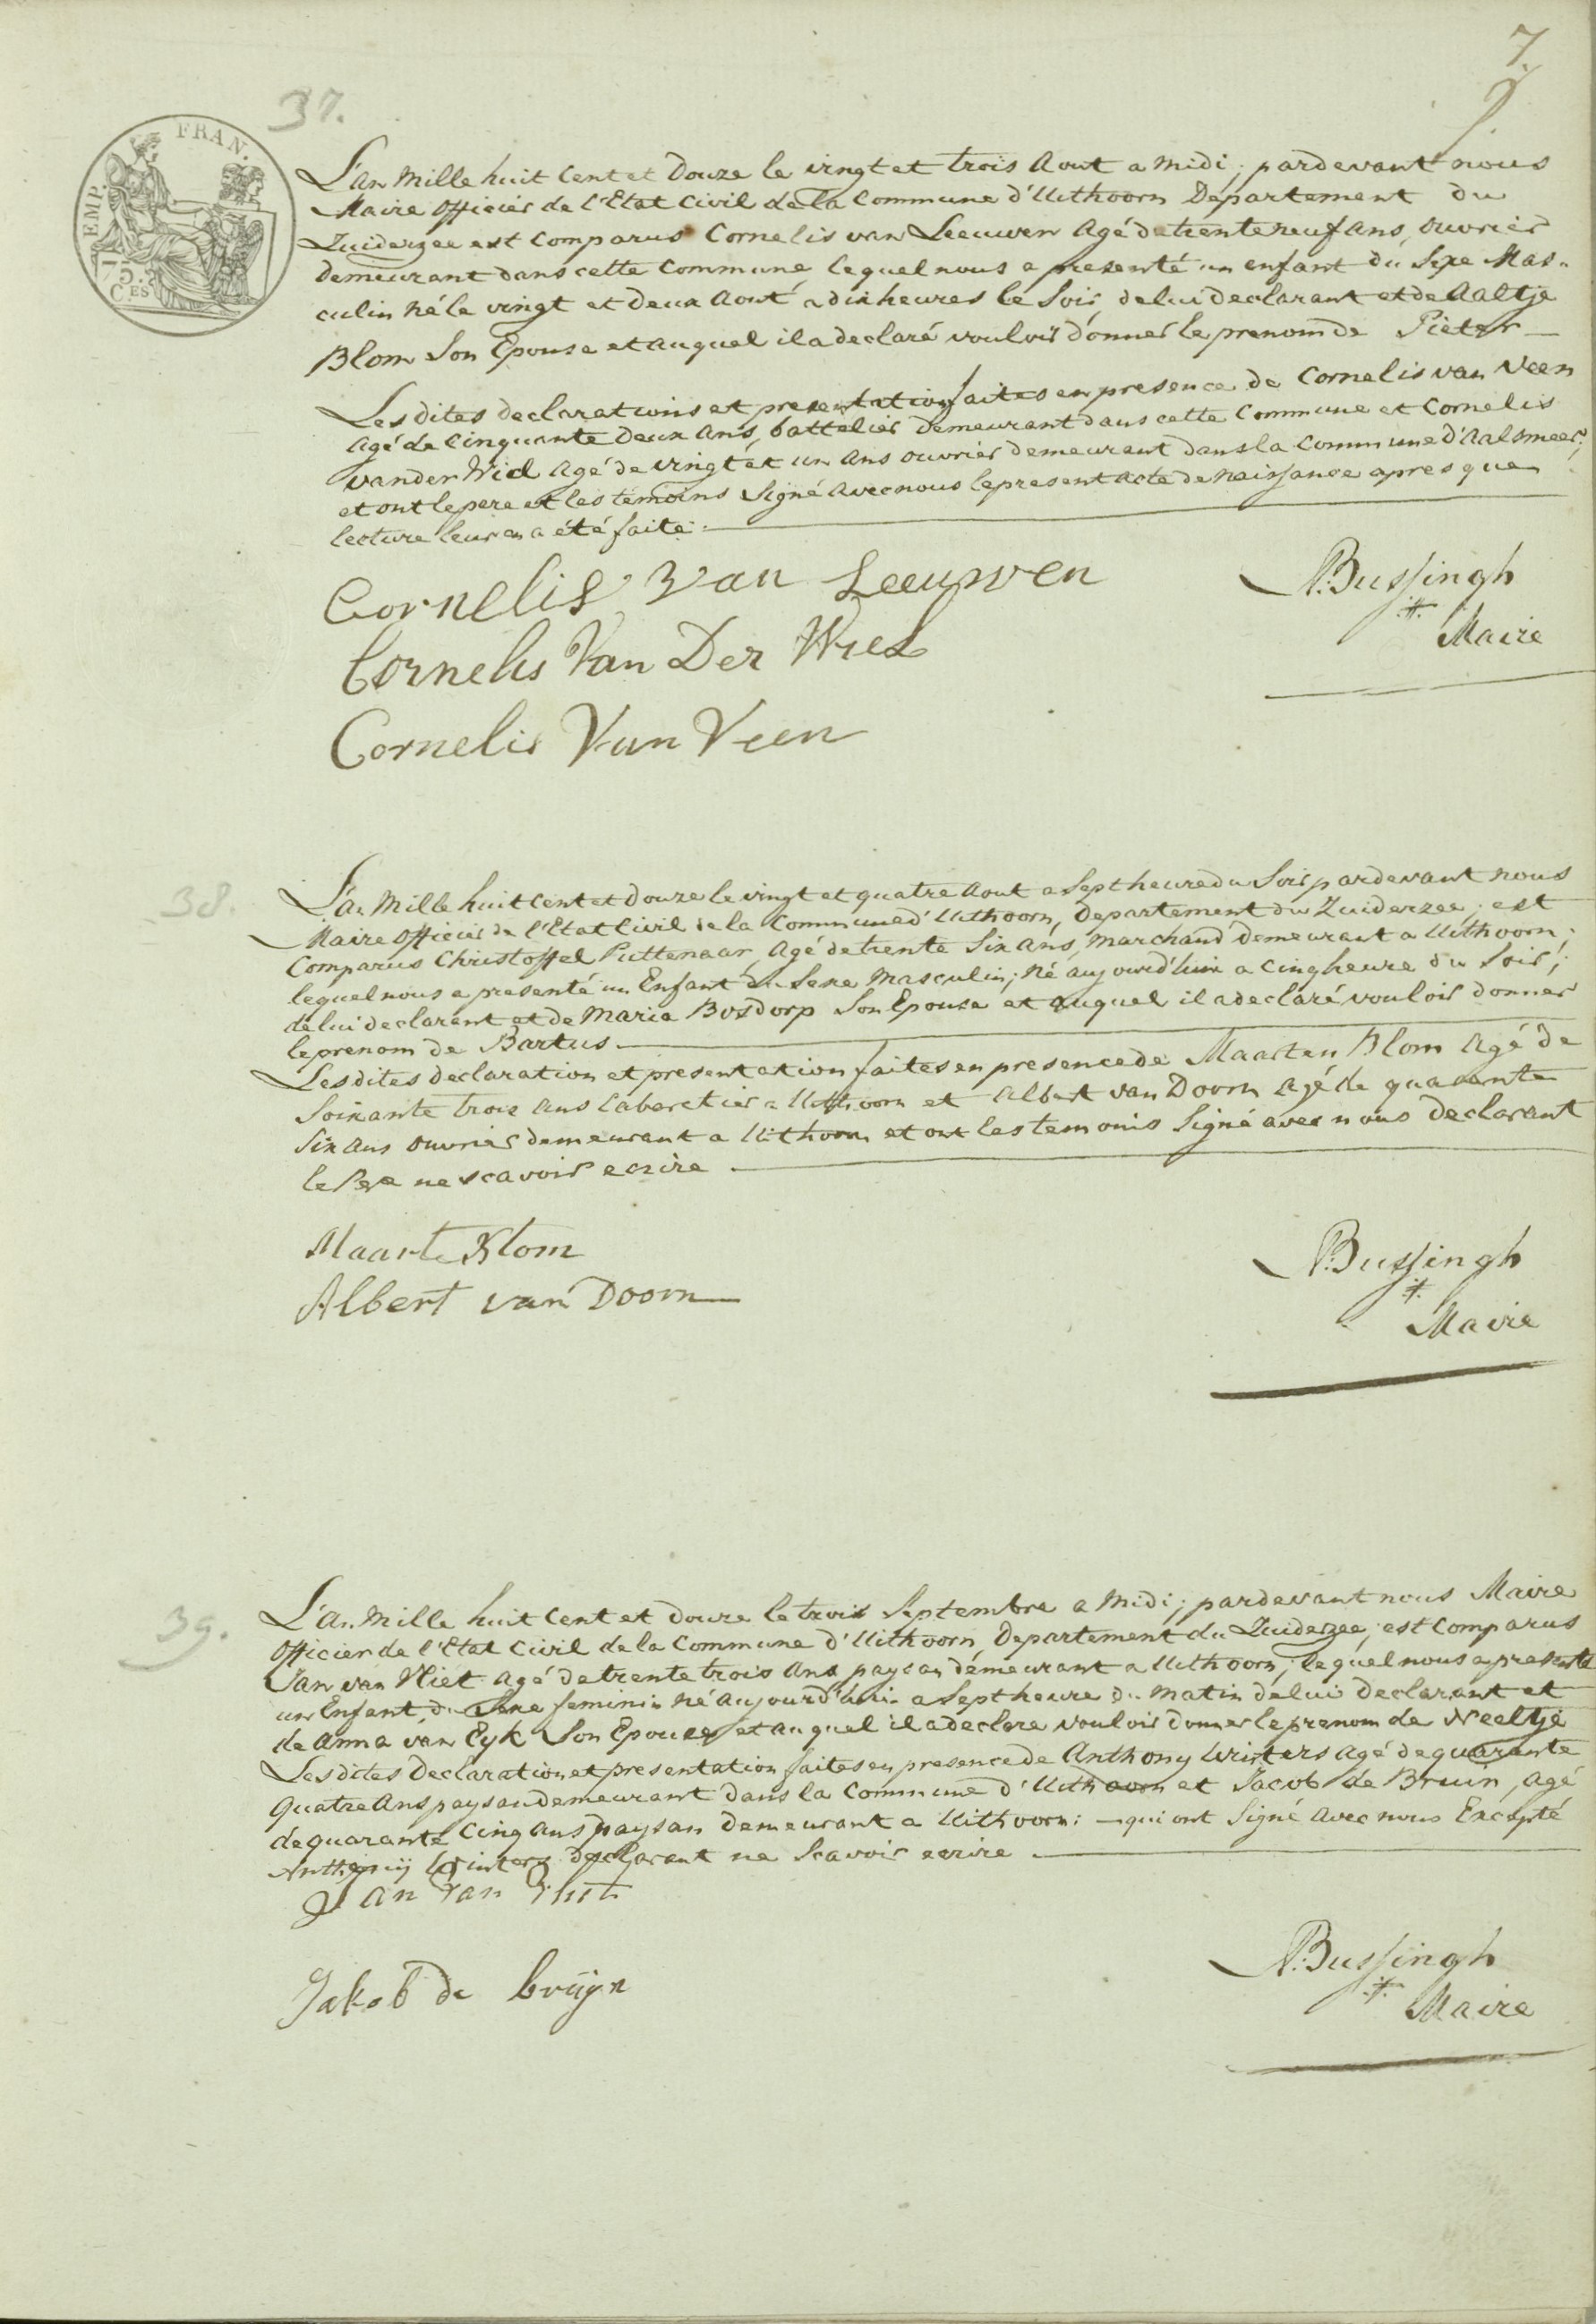 7.
37.
EMP. FRAN.
75.
C.ES
L'an Mille huit Cent et Douze le vingt et trois Aout a Midi; pardevant nous
Maire Officier de l'Etat Civil de la Commune d'Uithoorn Departement du
Zuiderzee est Comparus Cornelis van Leeuwen Agé de trente neuf ans, ouvrier
demeurant dans cette Commune, lequel nous a presenté un enfant du Sexe Mas-
culin né le vingt et deux Aout a dix heures le Soir, de lui declarant et de Aaltje
Blom Son Epouse et auquel il a declaré vouloir donner le prenom de Pieter —
Les dites declarations et presentation faites en presence de Cornelis van Veen
agé de Cinquante deux Ans, battelier demeurant dans cette Commune et Cornelis
van der Wiel Agé de vingt et un Ans ouvrier demeurant dans la Commune d'Aalsmeer,
et ont le pere et les temoins Signé Avec nous le present acte de naissance apres que
lecture leur en a été faite.
Cornelis van Leeuwen
Bussingh
Maire
Cornelis Van Der Wiel
Cornelis Van Veen
38.
L'an Mille huit Cent et douze le vingt et quatre Aout a Sept heure du Soir pardevant nous
Maire Officier de l'Etat Civil de la Commune d'Uithoorn, Departement du Zuiderzee; est
Comparus Christoffel Puttenaar, Agé de trente Six Ans, Marchand demeurant a Uithoorn;
lequel nous a presenté un Enfant du Sexe Masculin; né aujourd'hui a Cinq heure du Soir;
de lui declarant et de Maria Bosdorp Son Epouse et auquel il a declaré vouloir donner
le prenom de Bartus. —
Les dites declaration et presentation faites en presence de Maarten Blom Agé de
Soixante trois ans Cabaretier a Uithoorn et Albert van Doorn Agé de quarante
Six ans ouvrier demeurant a Uithoorn et ont les temonis Signé avec nous declarant
le Pere ne scavoir ecrire.
Maarte Blom
Albert van Doorn
Bussingh
Maire
39.
L'an Mille huit Cent et douze le trois Septembre a Midi; pardevant nous Maire
Officier de l'Etat Civil de la Commune d'Uithoorn, Departement du Zuiderzee; est Comparus
Jan van Vliet Agé de trente trois Ans paysan démeurant a Uithoorn; lequel nous a presenté
un Enfant, du Sexe feminin né aujourd'hui a Sept heure du Matin de lui declarant et
de Anna van Eyk Son Epouse et auquel il a declare vouloir donner le prenom de Neeltje
Les dites Declaration et presentation faites en presence de Anthony Winters Agé de quarante
Quatre Ans paysan demeurant dans la Commune d'Uithoorn et Jacob de Bruin, Agé
de quarante Cinq ans paysan demeurant a Uithoorn; — qui ont Signé Avec nous Excepté
Anthonij Winters declarant ne Scavoir ecrire.
Jan van Vliet
Jakob de bruijn
Bussingh
Maire